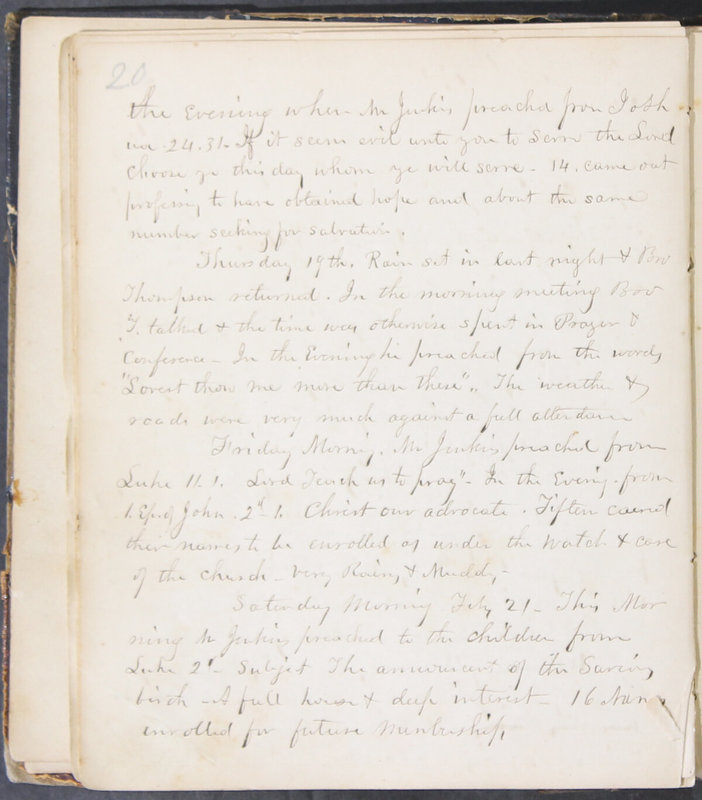 20
the Evening when Mr Jenkis preached from Josh
ua. 24. 31. If it seem evil unto you to serve the Lord
choose ye this day whom ye will serve - 14. came out
professing to have obtained hope and about the same
number seeking for salvation.
Thursday 19th. Rain set in last night & Bro
Thompson returned. In the morning meeting Bro
T. talked & the time was otherwise spent in Prayer &
Conference - In the Evening he preached from the words
"Lovest thou me more than these". The weather &
roads were very much against a full attendance
Friday Morning. Mr Jenkis preached from
Luke 11. 1. Lord Teach us to pray" - In the Evening from
1. Ep. of John. 2d - 1. Christ our advocate. Fiften
their names to be enrolled as under the watch & care
of the church - very Rainy & Muddy -
Saturday Morning Feby 21 - This Mor
ning Mr Jenkis preached to the children from
Luke 2d - Subject The of the Saviours
birth - A full house & deep interest - 16 Names
enrolled for future membership.